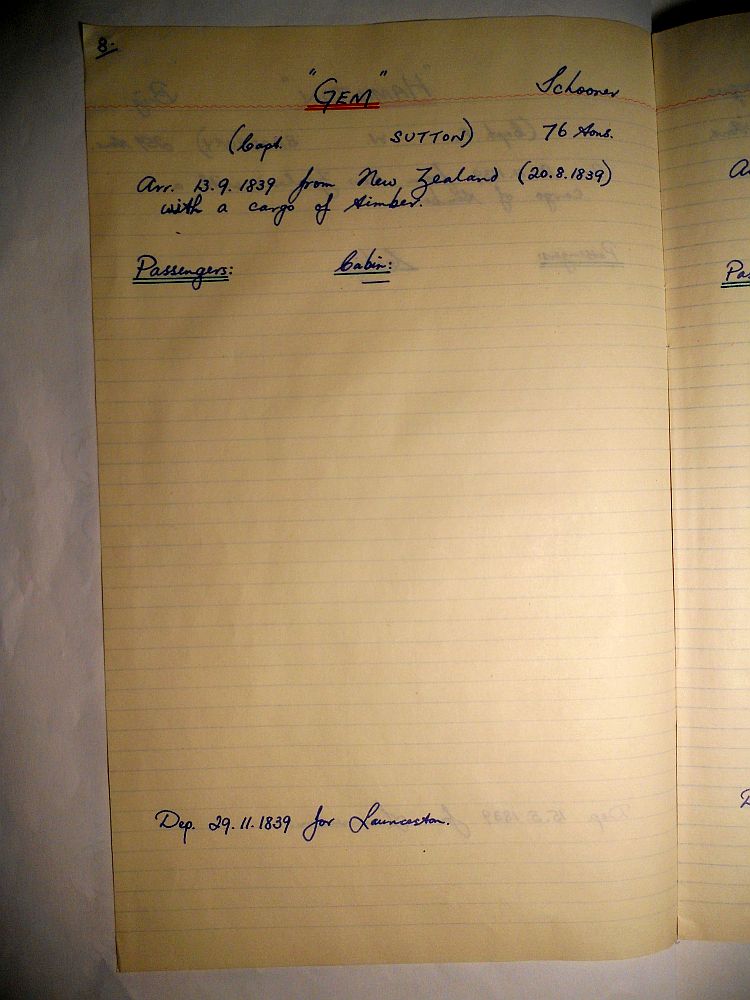 8.
"GEM" Schooner
(Capt. SUTTON) 76 tons.
Arr. 13.9.1839 from New Zealand (20.8.1839)
with a cargo of timber.
Passengers: Cabin:
Dep. 29.11.1839 for Launceston.